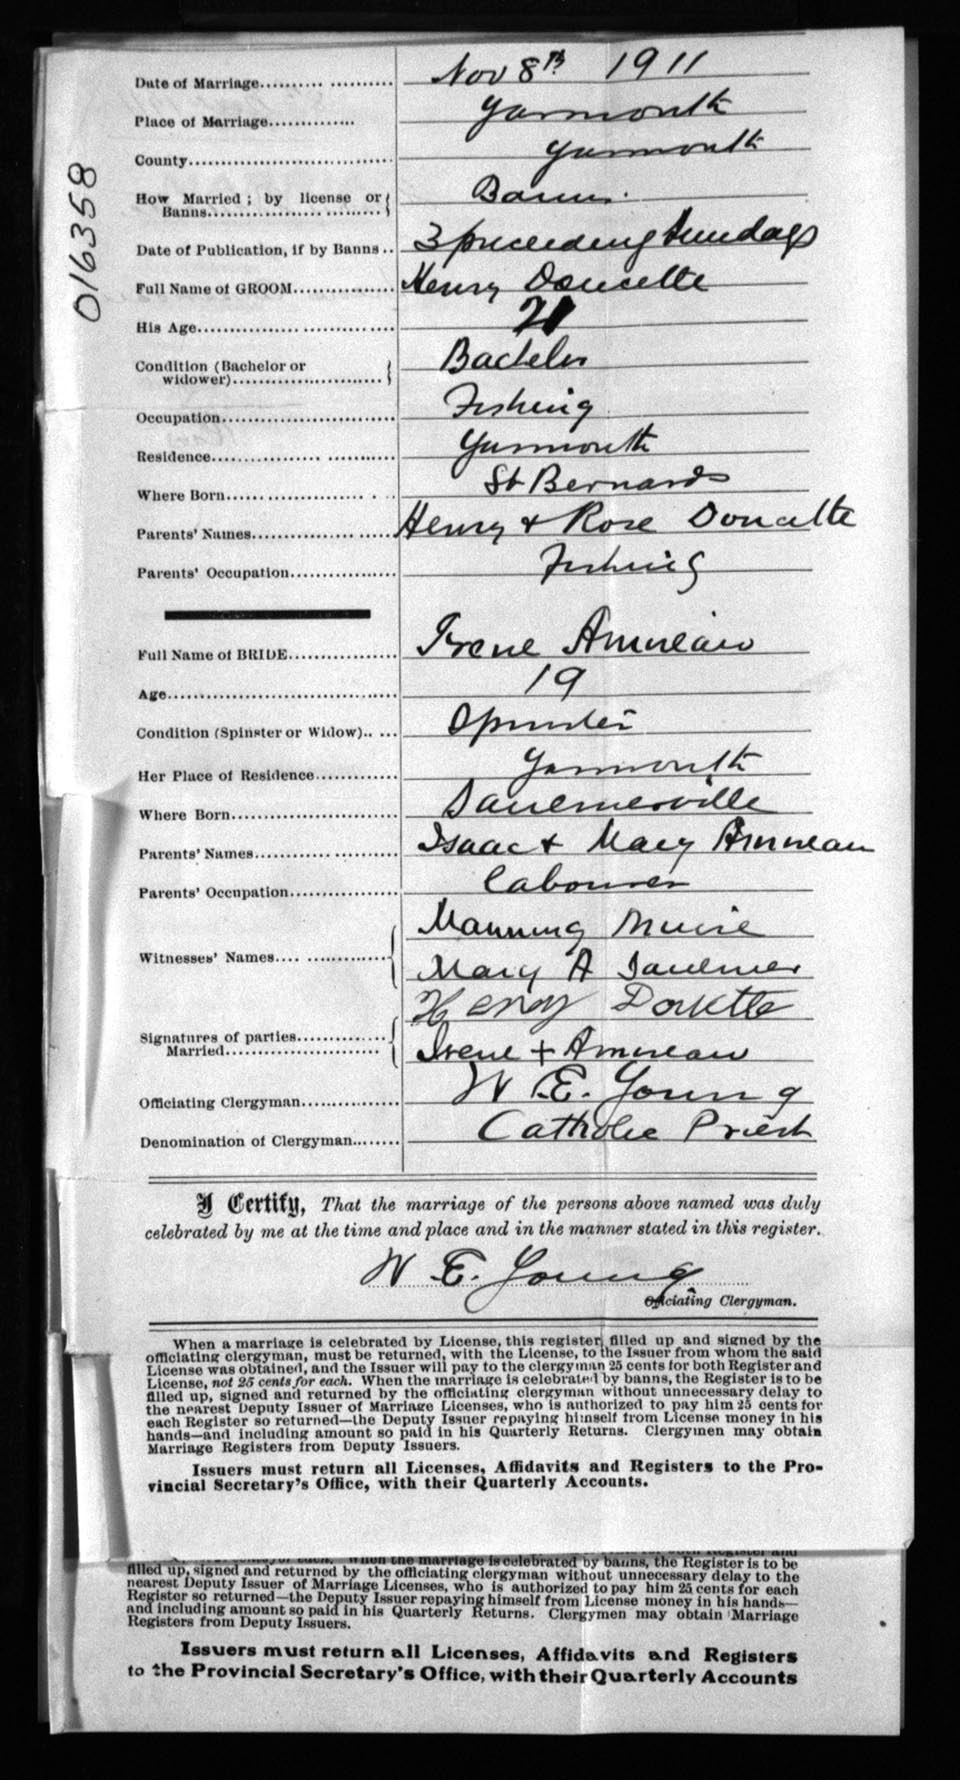 016358
Date of Marriage.......... ........... Nov 8th 1911
Place of Marriage.............. Yarmouth
County.............................. Yarmouth
How Married ; by license or
Banns.................. ......... Banns.
Date of Publication, if by Banns .. 3 preceeding Sundays
Full Name of GROOM............... Henry Doucette
His Age.................. .............. 21
Condition (Bachelor or
widower)........................ Bachelor
Occupation.......................... Fishing
Residence................ ........... Yarmouth
Where Born...... ................ . .. St Bernards
Parents' Names................ ...... Henry & Rose Doucette
Parents' Occupation................ Fishing
Full Name of BRIDE................ Irene Amireau
Age................................... 19
Condition (Spinster or Widow).. ... Spinster
Her Place of Residence............. Yarmouth
Where Born......................... Saulnierville
Parents' Names........... ........... Isaac & Mary Amireau
Parents' Occupation................ Labourer
Manning Muise
Witnesses' Names.... .............
Mary A Saulnier
Henry Doucette
Signatures of parties..............
Married........................ Irene + Amireau
Officiating Clergyman.............. W. E. Young
Denomination of Clergyman........ Catholic Priest
I Certify, That the marriage of the persons above named was duly
celebrated by me at the time and place and in the manner stated in this register.
W. E. Young
Officiating Clergyman.
When a marriage is celebrated by License, this register, filled up and signed by the
officiating clergyman, must be returned, with the License, to the Issuer from whom the said
License was obtained, and the Issuer will pay to the clergyman 25 cents for both Register and
License, not 25 cents for each. When the marriage is celebrated by banns, the Register is to be
filled up, signed and returned by the officiating clergyman without unnecessary delay to
the nearest Deputy Issuer of Marriage Licenses, who is authorized to pay him 25 cents for
each Register so returned—the Deputy Issuer repaying himself from License money in his
hands—and including amount so paid in his Quarterly Returns. Clergymen may obtain
Marriage Registers from Deputy Issuers.
Issuers must return all Licenses, Affidavits and Registers to the Pro-
vincial Secretary's Office, with their Quarterly Accounts.
When the marriage is celebrated by banns, the Register is to be
filled up, signed and returned by the officiating clergyman without unnecessary delay to the
nearest Deputy Issuer of Marriage Licenses, who is authorized to pay him 25 cents for each
Register so returned—the Deputy Issuer repaying himself from License money in his hands—
and including amount so paid in his Quarterly Returns. Clergymen may obtain Marriage
Registers from Deputy Issuers.
Issuers must return all Licenses, Affidavits and Registers
to the Provincial Secretary's Office, with their Quarterly Accounts